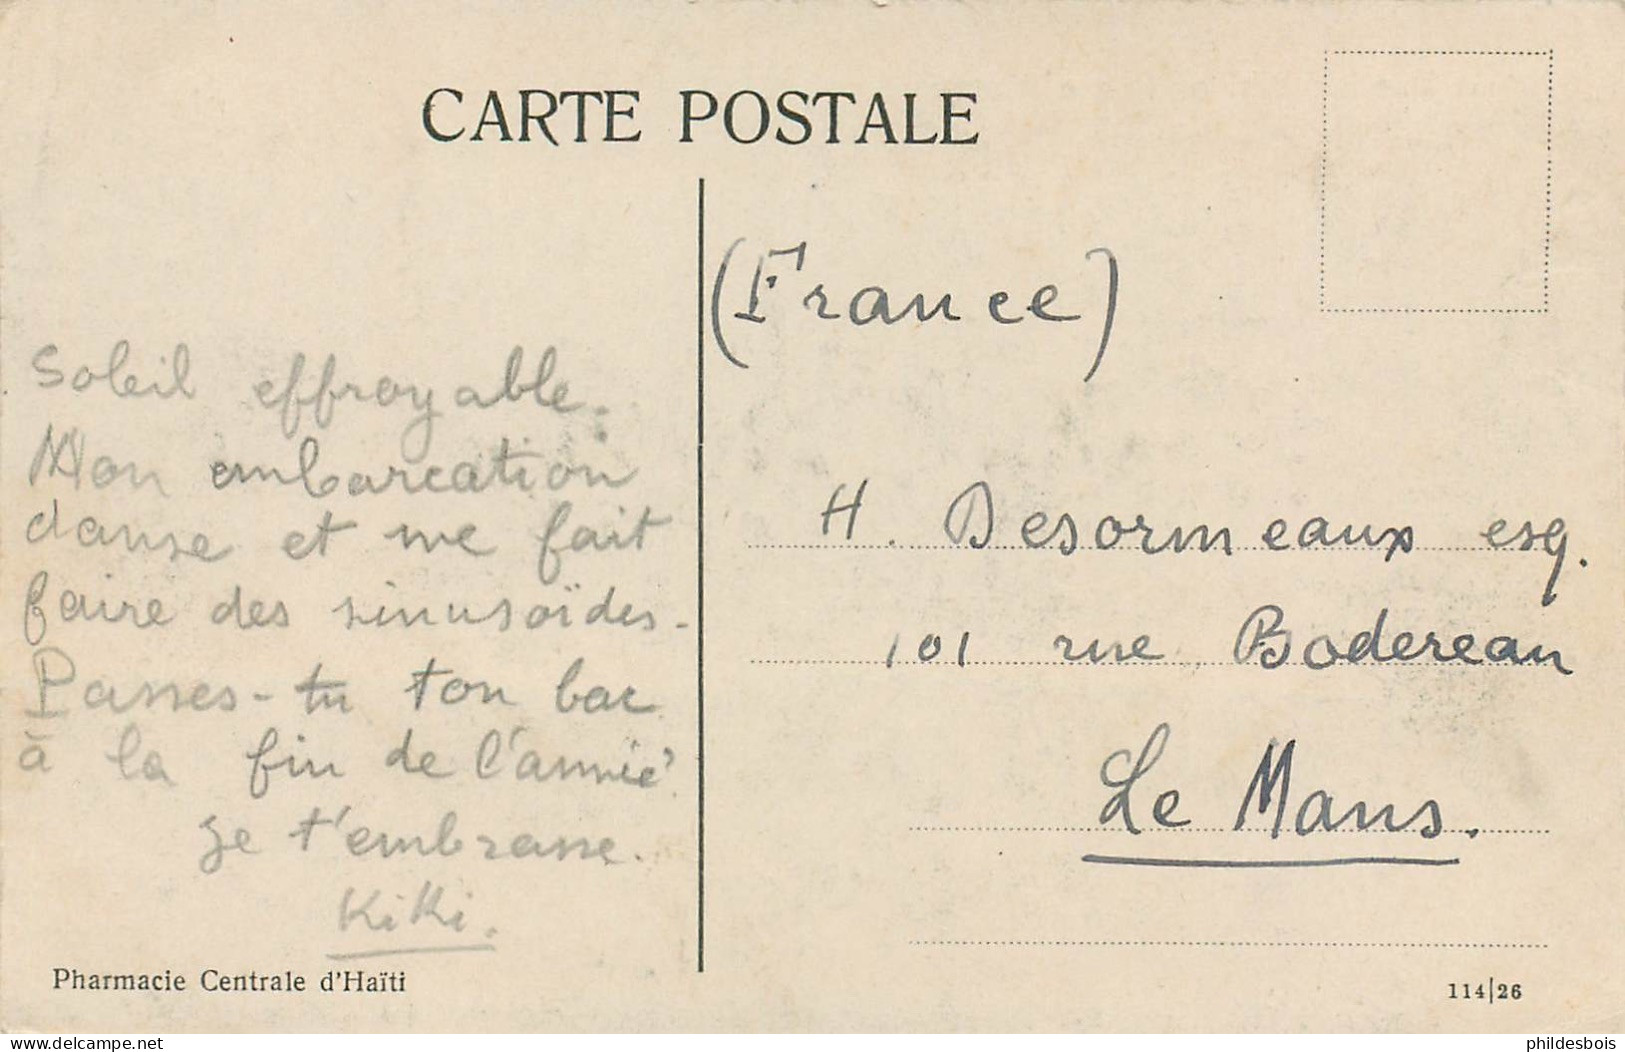 CARTE POSTALE
(France)
Soleil effroyable.
Mon embarcation
danse et me fait
faire des sinusoïdes.
Passes-tu ton bac
à la fin de l'année?
Je t'embrasse.
KiKi.
H. Desormeaux esq.
101 rue Bodereau
Le Mans.
Pharmacie Centrale d'Haïti
114|26
delcampe.net
phildesbois